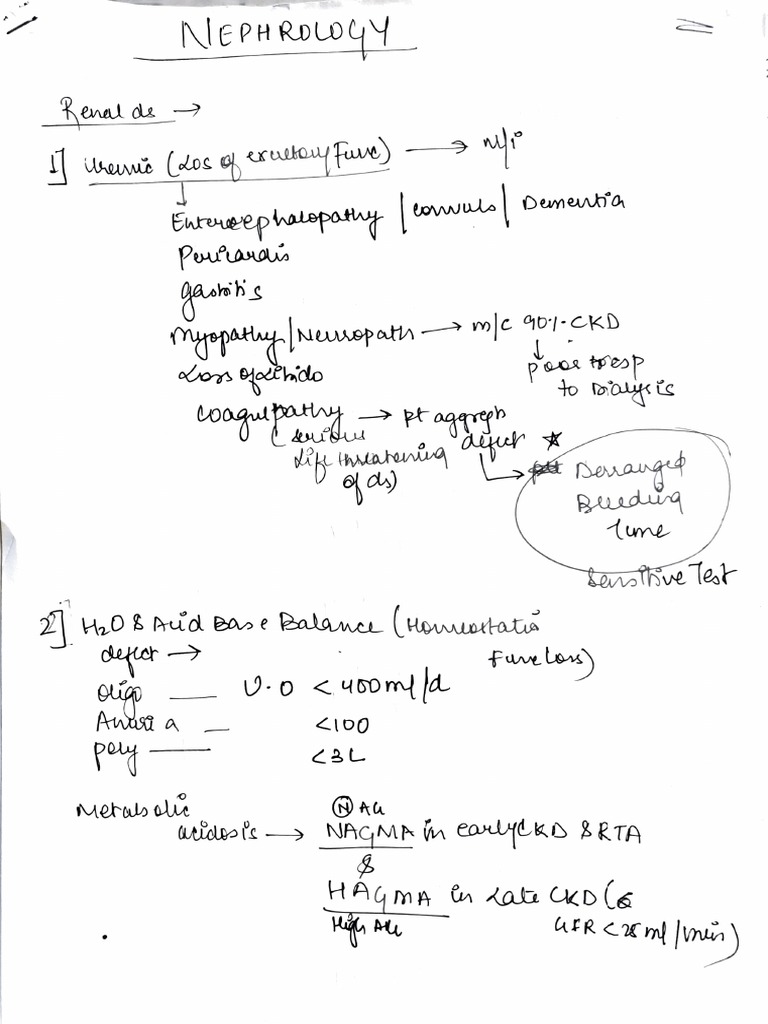 NEPHROLOGY
Renal ds →
1] Uremic (Los of excretory Func) → m/i
↓
Enterocephalopathy / convuls / Dementia
Pericardis
gastitis
myopathy / Neuropath → m/c 90% CKD
↓
Loss of Libido poor resp
to Dialysis
coagulpathy → pt aggregn
(serious defect ★
Life threatening
of ds) → Derranged
Bleeding
Time
Sensitive Test
2] H₂O & Acid Base Balance (Homeostatic
defect → Func loss)
oligo — U.O <400ml/d
Anuria — <100
poly — <3L
Metabolic Ⓝ AG
acidosis → NAGMA in early CKD & RTA
&
HAGMA in Late CKD (
High AG GFR <25 ml/min)